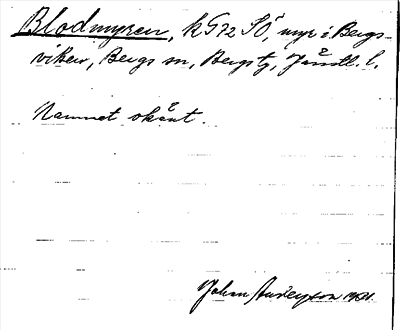 Blodmyren, kG72 SÖ, myr i Bergs-
viken, Bergs sn, Bergs tg, Jämtl. l.
Namnet okänt.
Johan Andersson